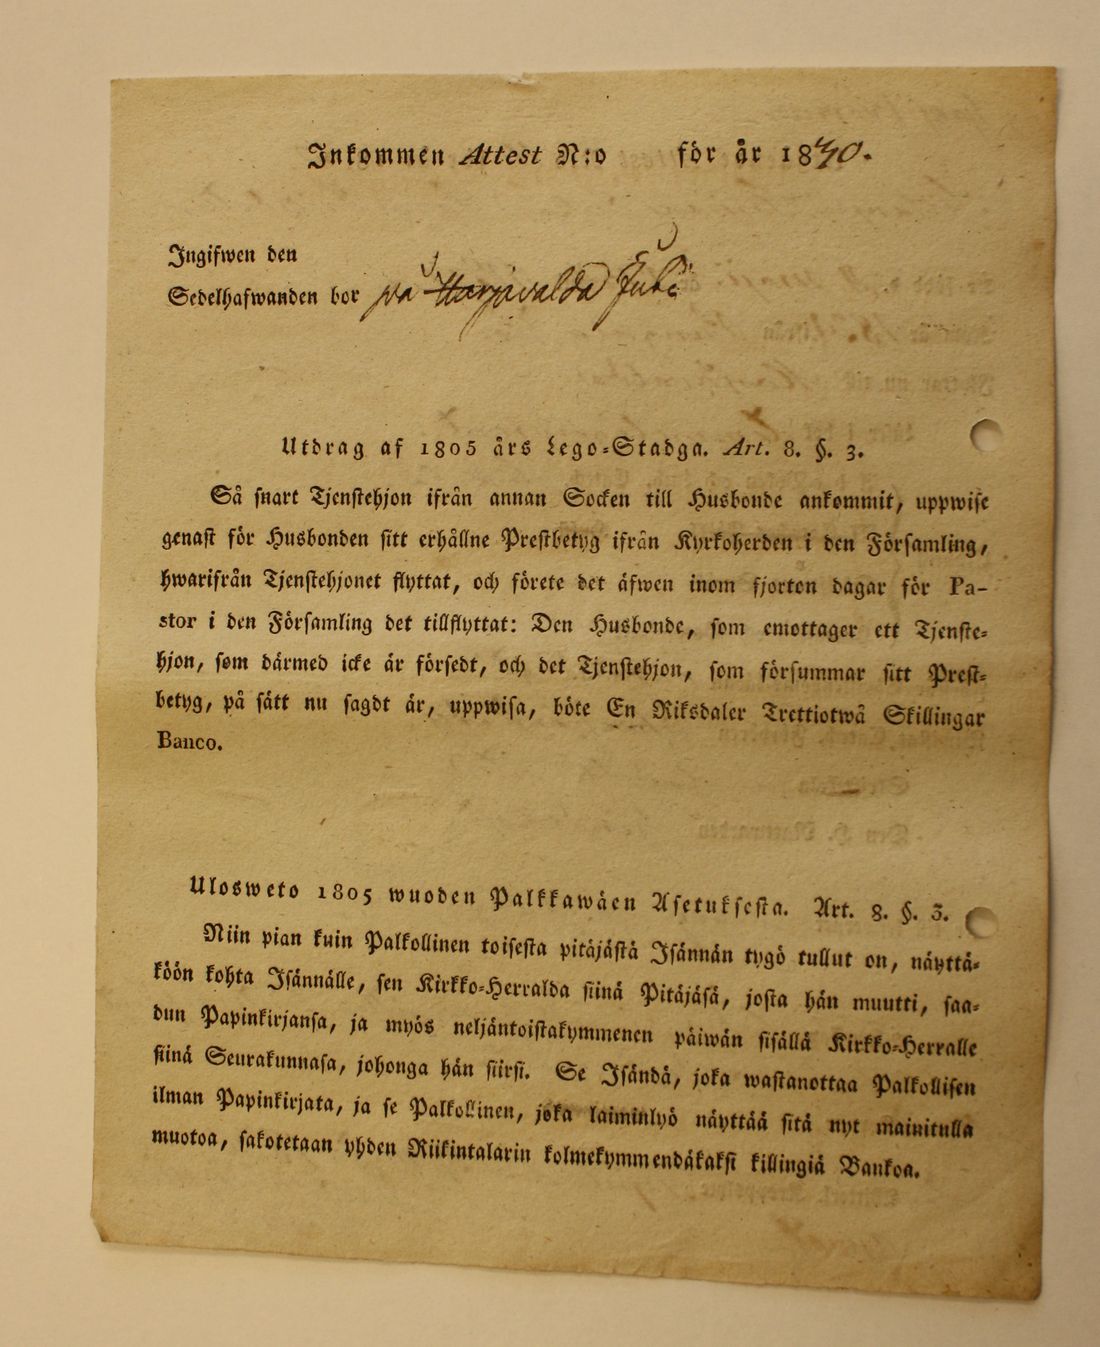 Inkommen Attest N:o för år 1830.
Ingifwen den
Sedelhafwanden bor på
Utdrag af 1805 års Lego-Stadga. Art. 8. §. 3.
Så snart Tjenstehjon ifrån annan Socken till Husbonde ankommit, uppwise
genast för Husbonden sitt erhållne Prestbetyg ifrån Kyrkoherden i den Församling,
hwarifrån Tjenstehjonet flyttat, och förete det äfwen inom fjorton dagar för Pa-
stor i den Församling det tillflyttat: Den Husbonde, som emottager ett Tjenste-
hjon, som därmed icke är försedt, och det Tjenstehjon, som försummar sitt Prest-
betyg, på sätt nu sagdt är, uppwisa, böte En Riksdaler Trettiotwå Skillingar
Banco.
Ulosweto 1805 wuoden Palkkawäen Asetuksesta. Art. 8. §. 3.
Niin pian kuin Palkollinen toisesta pitäjästä Isännän tygö tullut on, näyttä-
köön kohta Isännälle, sen Kirkko-Herralda siinä Pitäjäsä, josta hän muutti, saa-
dun Papinkirjansa, ja myös neljäntoistakymmenen päiwän sisällä Kirkko-Herralle
siinä Seurakunnasa, johonga hän siirsi. Se Isändä, joka wastanottaa Palkollisen
ilman Papinkirjata, ja se Palkollinen, joka laiminlyö näyttää sitä nyt mainitulla
muotoa, sakotetaan yhden Riikintalarin kolmekymmendäkaksi killingiä Bankoa.